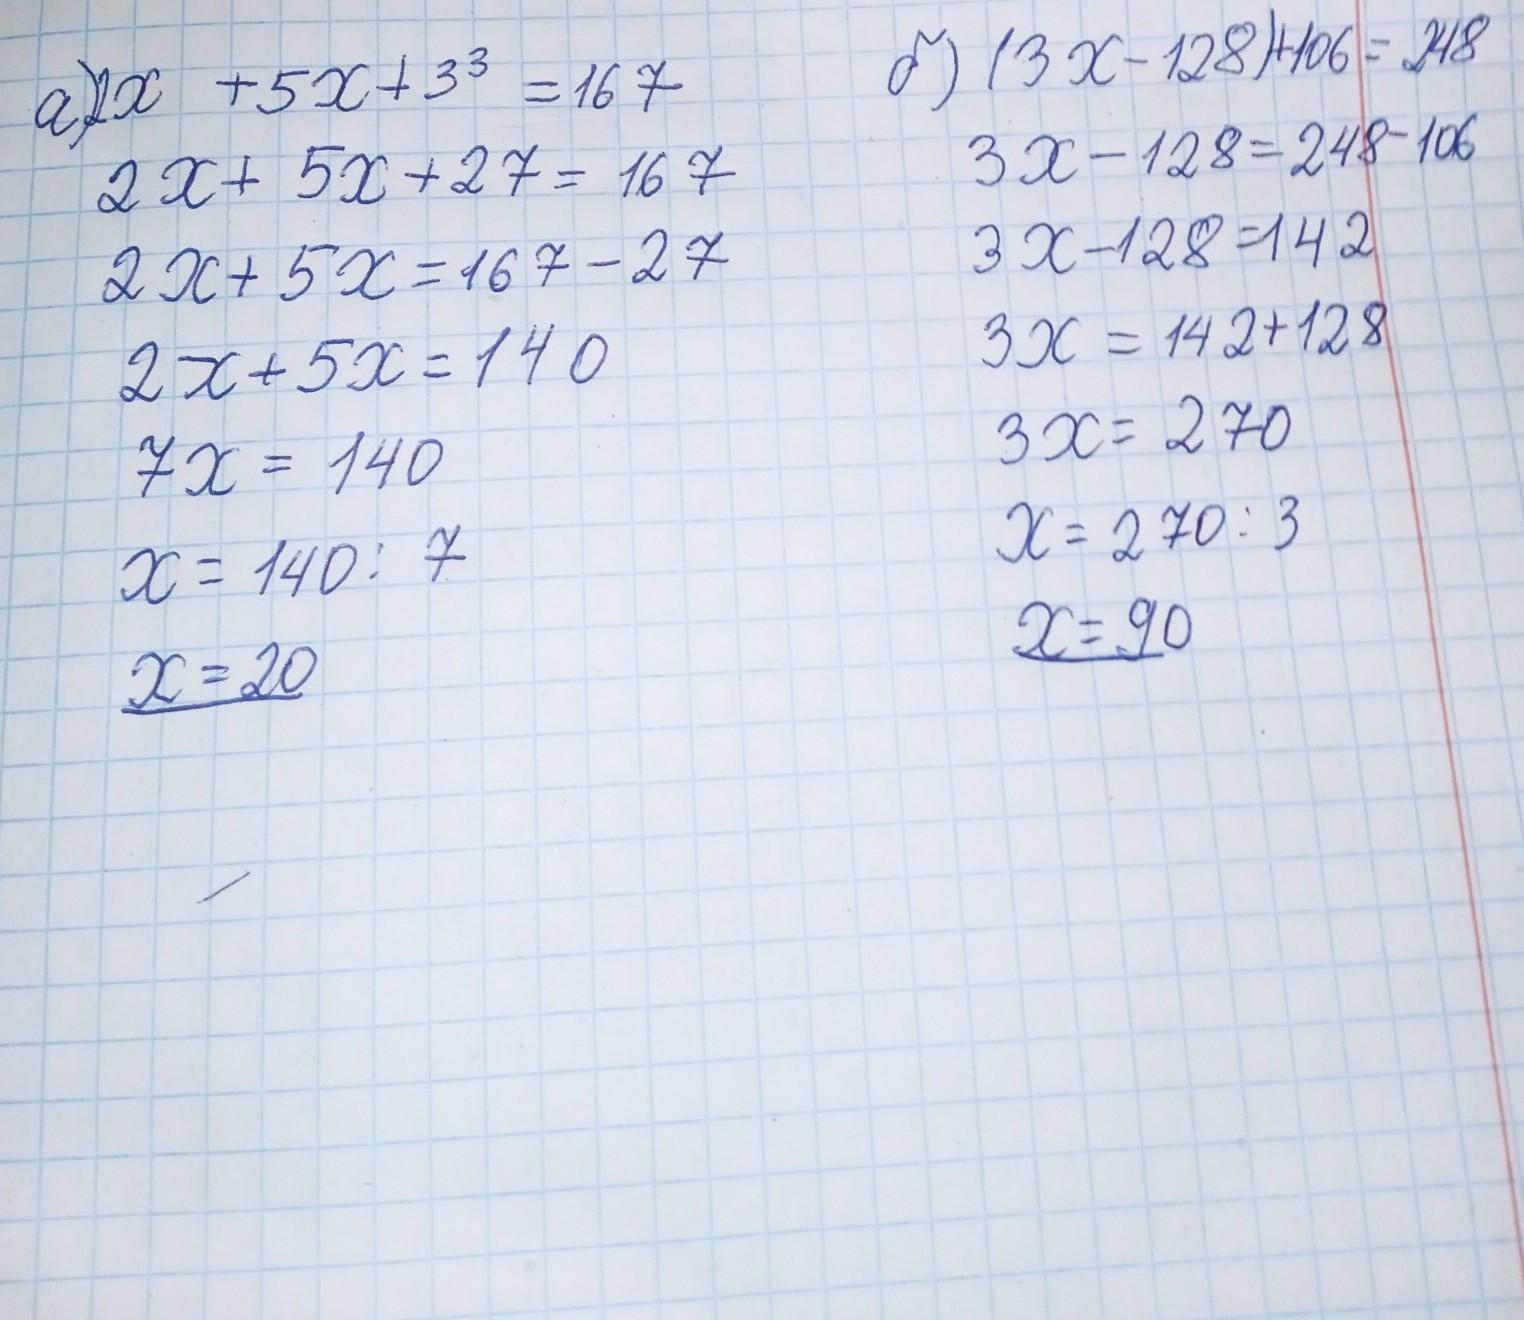 а) 2x + 5x + 3³ = 167
2x + 5x + 27 = 167
2x + 5x = 167 - 27
2x + 5x = 140
7x = 140
x = 140 : 7
x = 20
б) (3x - 128) + 106 = 248
3x - 128 = 248 - 106
3x - 128 = 142
3x = 142 + 128
3x = 270
x = 270 : 3
x = 90